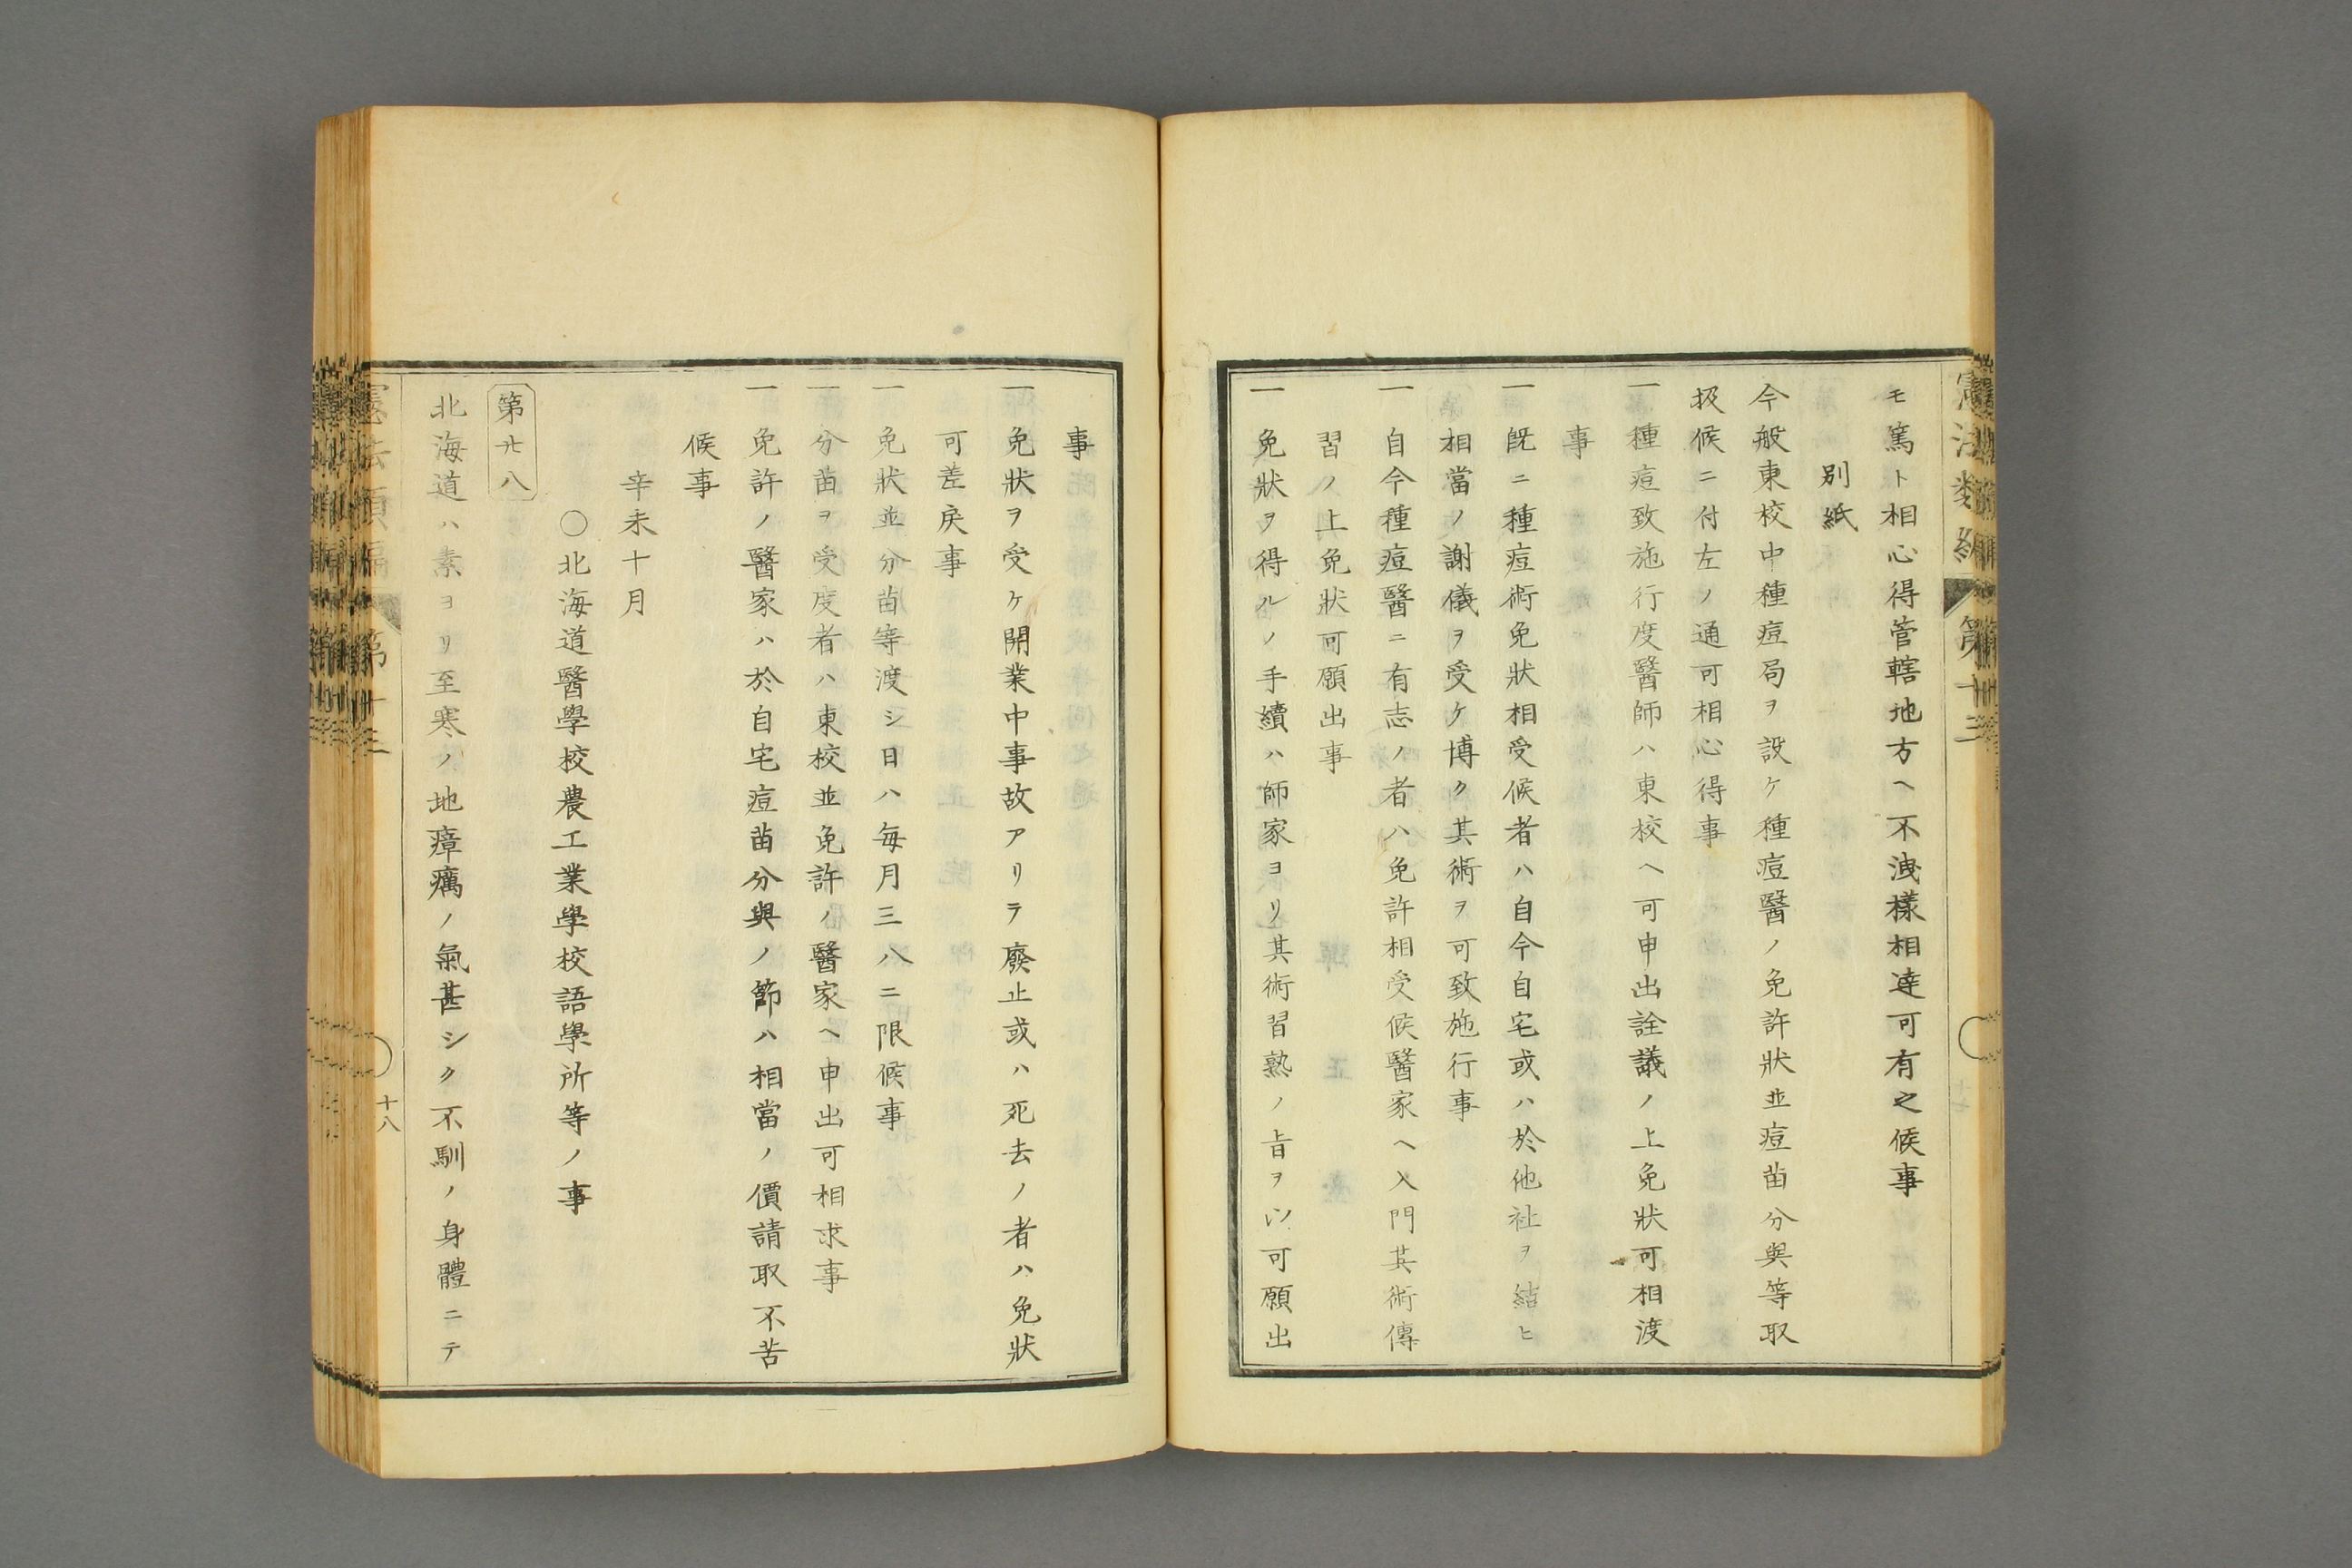 モ篤ト相心得管轄地方ヘ不洩樣相達可有之候事
別紙
今般東校中種痘局ヲ設ケ種痘醫ノ免許狀並痘苗分與等取
扱候ニ付左ノ通可相心得事
一種痘致施行度醫師ハ東校ヘ可申出詮議ノ上免狀可相渡
事
一既ニ種痘術免狀相受候者ハ自今自宅或ハ於他社ヲ結ヒ
相當ノ謝儀ヲ受ケ博ク其術ヲ可致施行事
一自今種痘醫ニ有志ノ者ハ免許相受候醫家ヘ入門其術傳
習ノ上免狀可願出事
一免狀ヲ得ルノ手續ハ師家ヨリ其術習熟ノ旨ヲ以可願出
事
一免狀ヲ受ケ開業中事故アリテ廢止或ハ死去ノ者ハ免狀
可差戾事
一免狀並分苗等渡シ日ハ每月三八ニ限候事
一分苗ヲ受度者ハ東校並免許ノ醫家ヘ申出可相求事
一免許ノ醫家ハ於自宅痘苗分與ノ節ハ相當ノ價請取不苦
候事
辛未十月
○北海道醫學校農工業學校語學所等ノ事
第廿八
北海道ハ素ヨリ至寒ノ地瘴癘ノ氣甚シク不馴ノ身體ニテ
十八